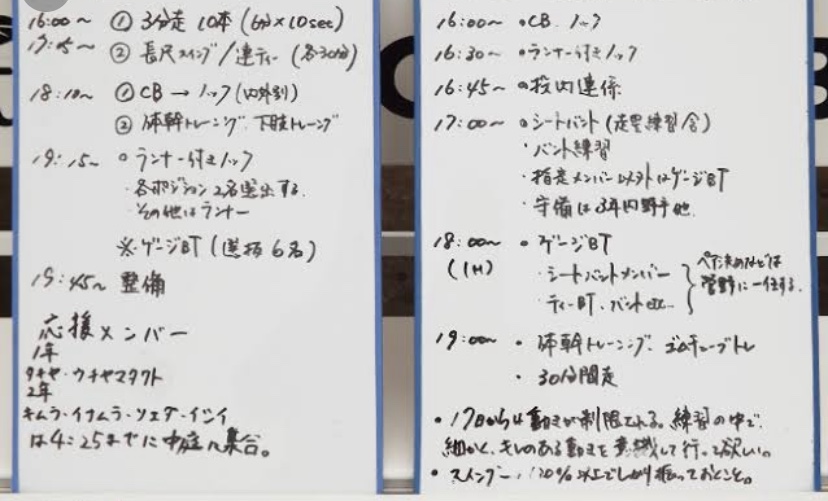 16:00〜 ① 3分走 10本 (6分×10sec)
17:05〜 ② 長尺スイング/連ティー (各30分)
18:10〜 ① CB → ノック (内外別)
② 体幹トレーニング. 下肢トレーニング
19:15〜 ○ ランナー付きノック
・各ポジション2名選出する.
・その他はランナー
※ゲージBT (選抜6名)
19:45〜 整備
応援メンバー
1年
タナヤ・ウチヤマタクト
2年
キムラ・イナムラ・ソエダ・イシイ
は4:25までに中庭に集合。
16:00〜 ○CB. ノック
16:30〜 ○ランナー付きノック
16:45〜 ○投内連係
17:00〜 ○シートバント (走塁練習含)
・バント練習
・指定メンバー以外はゲージBT
・守備は3年内野手他.
18:00〜 ○ ゲージBT
(1H) ・シートバントメンバー
・ティーBT、バントetc..
ペア決めなどは
菅野に一任する.
19:00〜 ・体幹トレーニング、ゴムチューブトレ
・30分間走
・17日から動きが制限される。練習の中で
細かく、キレのある動きを意識して行って欲しい。
・スイングー、120%以上でしっかり振っておくこと。